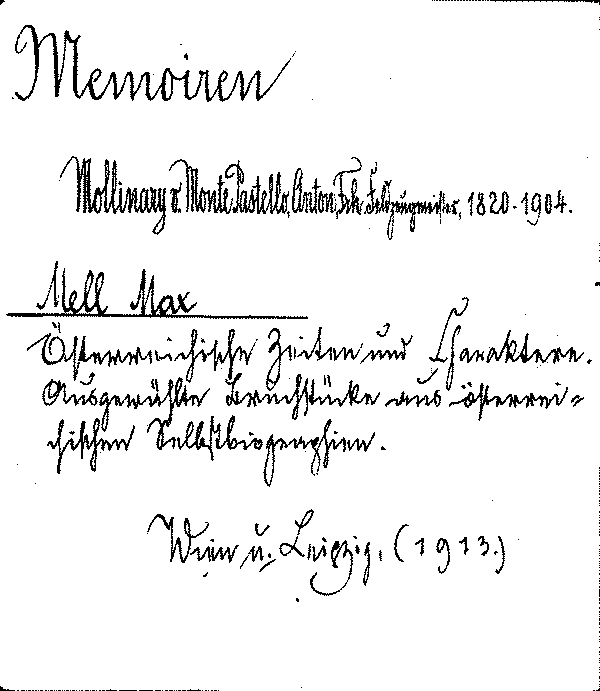 Memoiren
Mollinary v. Monte Pastello, Anton, Frh. Feldzeugmeister, 1820-1904.
Mell Max
Österreichische Zeiten und Charaktere.
Ausgewählte Bruchstücke aus österrei=
chischen Selbstbiographien.
Wien u. Leipzig, (1913.)